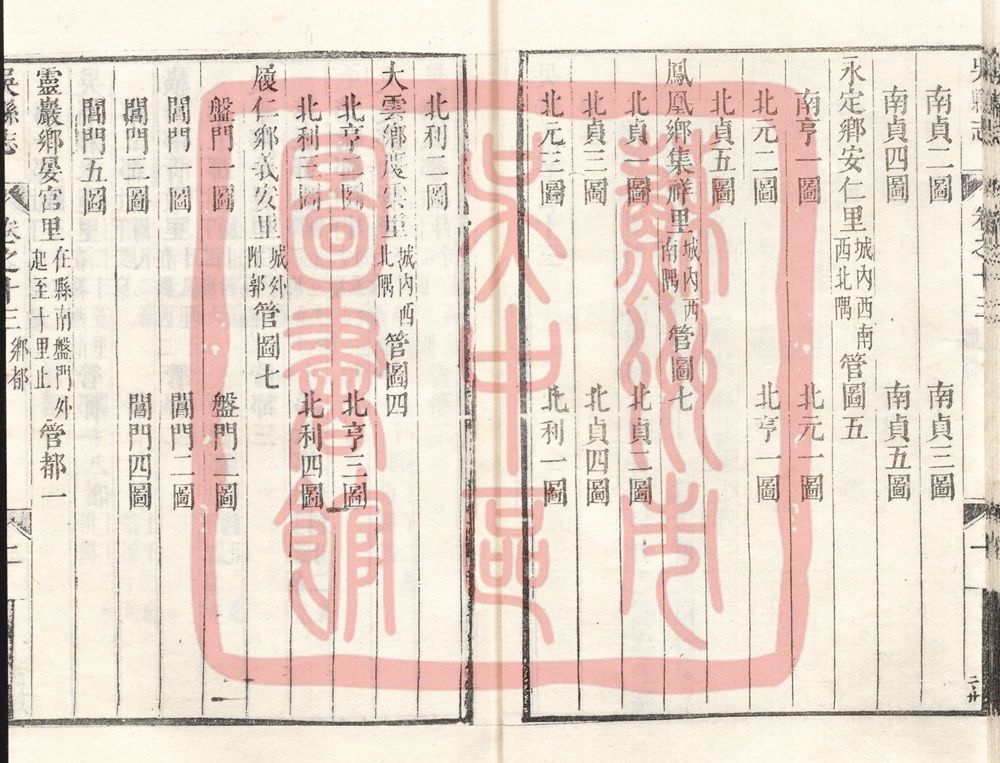 吳縣志 卷之十三
南貞二圖 南貞三圖
南貞四圖 南貞五圖
永定鄉安仁里 城內西南西北隅 管圖五
南亨一圖 北元一圖
北元二圖 北亨一圖
北貞五圖
鳳凰鄉集祥里 城內西南隅 管圖七
北貞一圖 北貞二圖
北貞三圖 北貞四圖
北元三圖 北利一圖
北利二圖
大雲鄉慶雲里 城內西北隅 管圖四
北亨二圖 北亨三圖
北利三圖 北利四圖
履仁鄉義安里 城外附郭 管圖七
盤門一圖 盤門二圖
閶門一圖 閶門二圖
閶門三圖 閶門四圖
閶門五圖
靈巖鄉晏宮里 在縣南盤門外起至十里止 管都一
吳縣志 卷之十三 鄉都 二
蘇州市
吳中區
圖書館